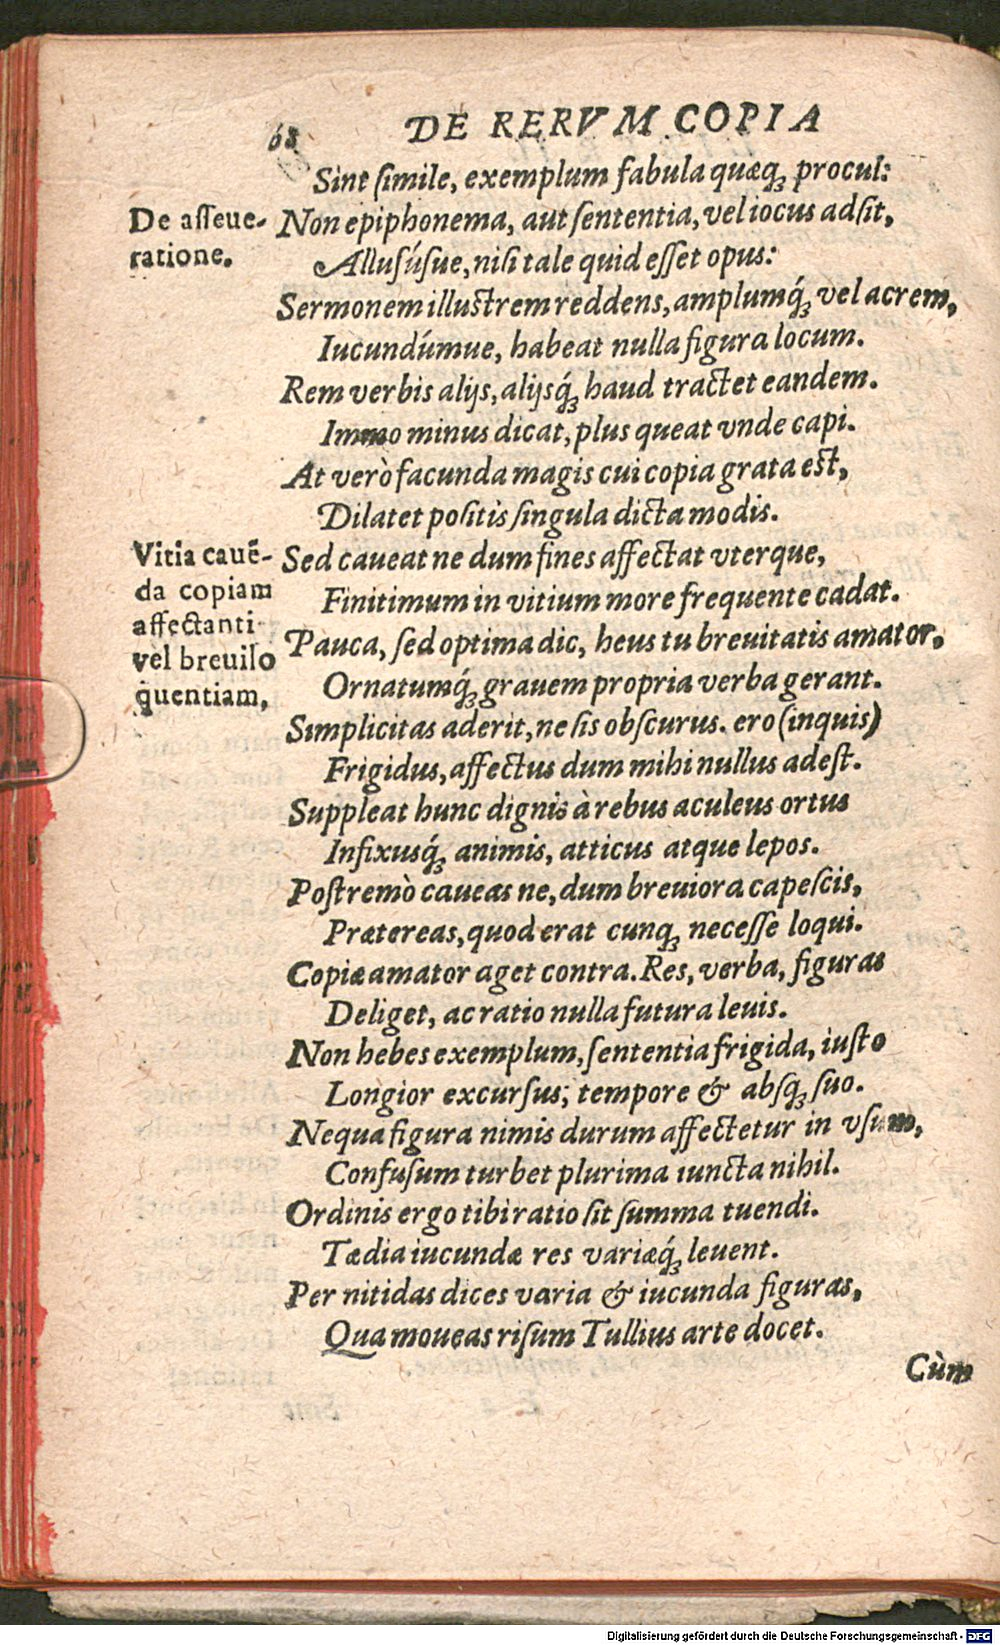 68
DE RERVM COPIA
Sint ſimile, exemplum fabula quæq́; procul:
De aſſeue-
ratione.
Non epiphonema, aut ſententia, vel iocus adſit,
Alluſúſue, niſi tale quid eſſet opus:
Sermonem illuſtrem reddens, amplumq́; vel acrem,
Iucundúmue, habeat nulla figura locum.
Rem verbis alijs, alijsq́; haud tractet eandem.
Immo minus dicat, plus queat vnde capi.
At verò facunda magis cui copia grata eſt,
Dilatet poſitis ſingula dicta modis.
Vitia cauē-
da copiam
affectanti
vel breuilo
quentiam,
Sed caueat ne dum fines affectat vterque,
Finitimum in vitium more frequente cadat.
Pauca, ſed optima dic, heus tu breuitatis amator,
Ornatumq́; grauem propria verba gerant.
Simplicitas aderit, ne ſis obſcurus. ero (inquis)
Frigidus, affectus dum mihi nullus adeſt.
Suppleat hunc dignis à rebus aculeus ortus
Infixusq́; animis, atticus atque lepos.
Poſtremò caueas ne, dum breuiora capeſcis,
Prætereas, quod erat cunq; neceſſe loqui.
Copiæ amator aget contra. Res, verba, figuras
Deliget, ac ratio nulla futura leuis.
Non hebes exemplum, ſententia frigida, iuſto
Longior excurſus; tempore & abſq; ſuo.
Nequa figura nimis durum affectetur in vſum,
Confuſum turbet plurima iuncta nihil.
Ordinis ergo tibi ratio ſit ſumma tuendi.
Tædia iucundæ res variæq́; leuent.
Per nitidas dices varia & iucunda figuras,
Qua moueas riſum Tullius arte docet.
Cùm
Digitalisierung gefördert durch die Deutsche Forschungsgemeinschaft - DFG